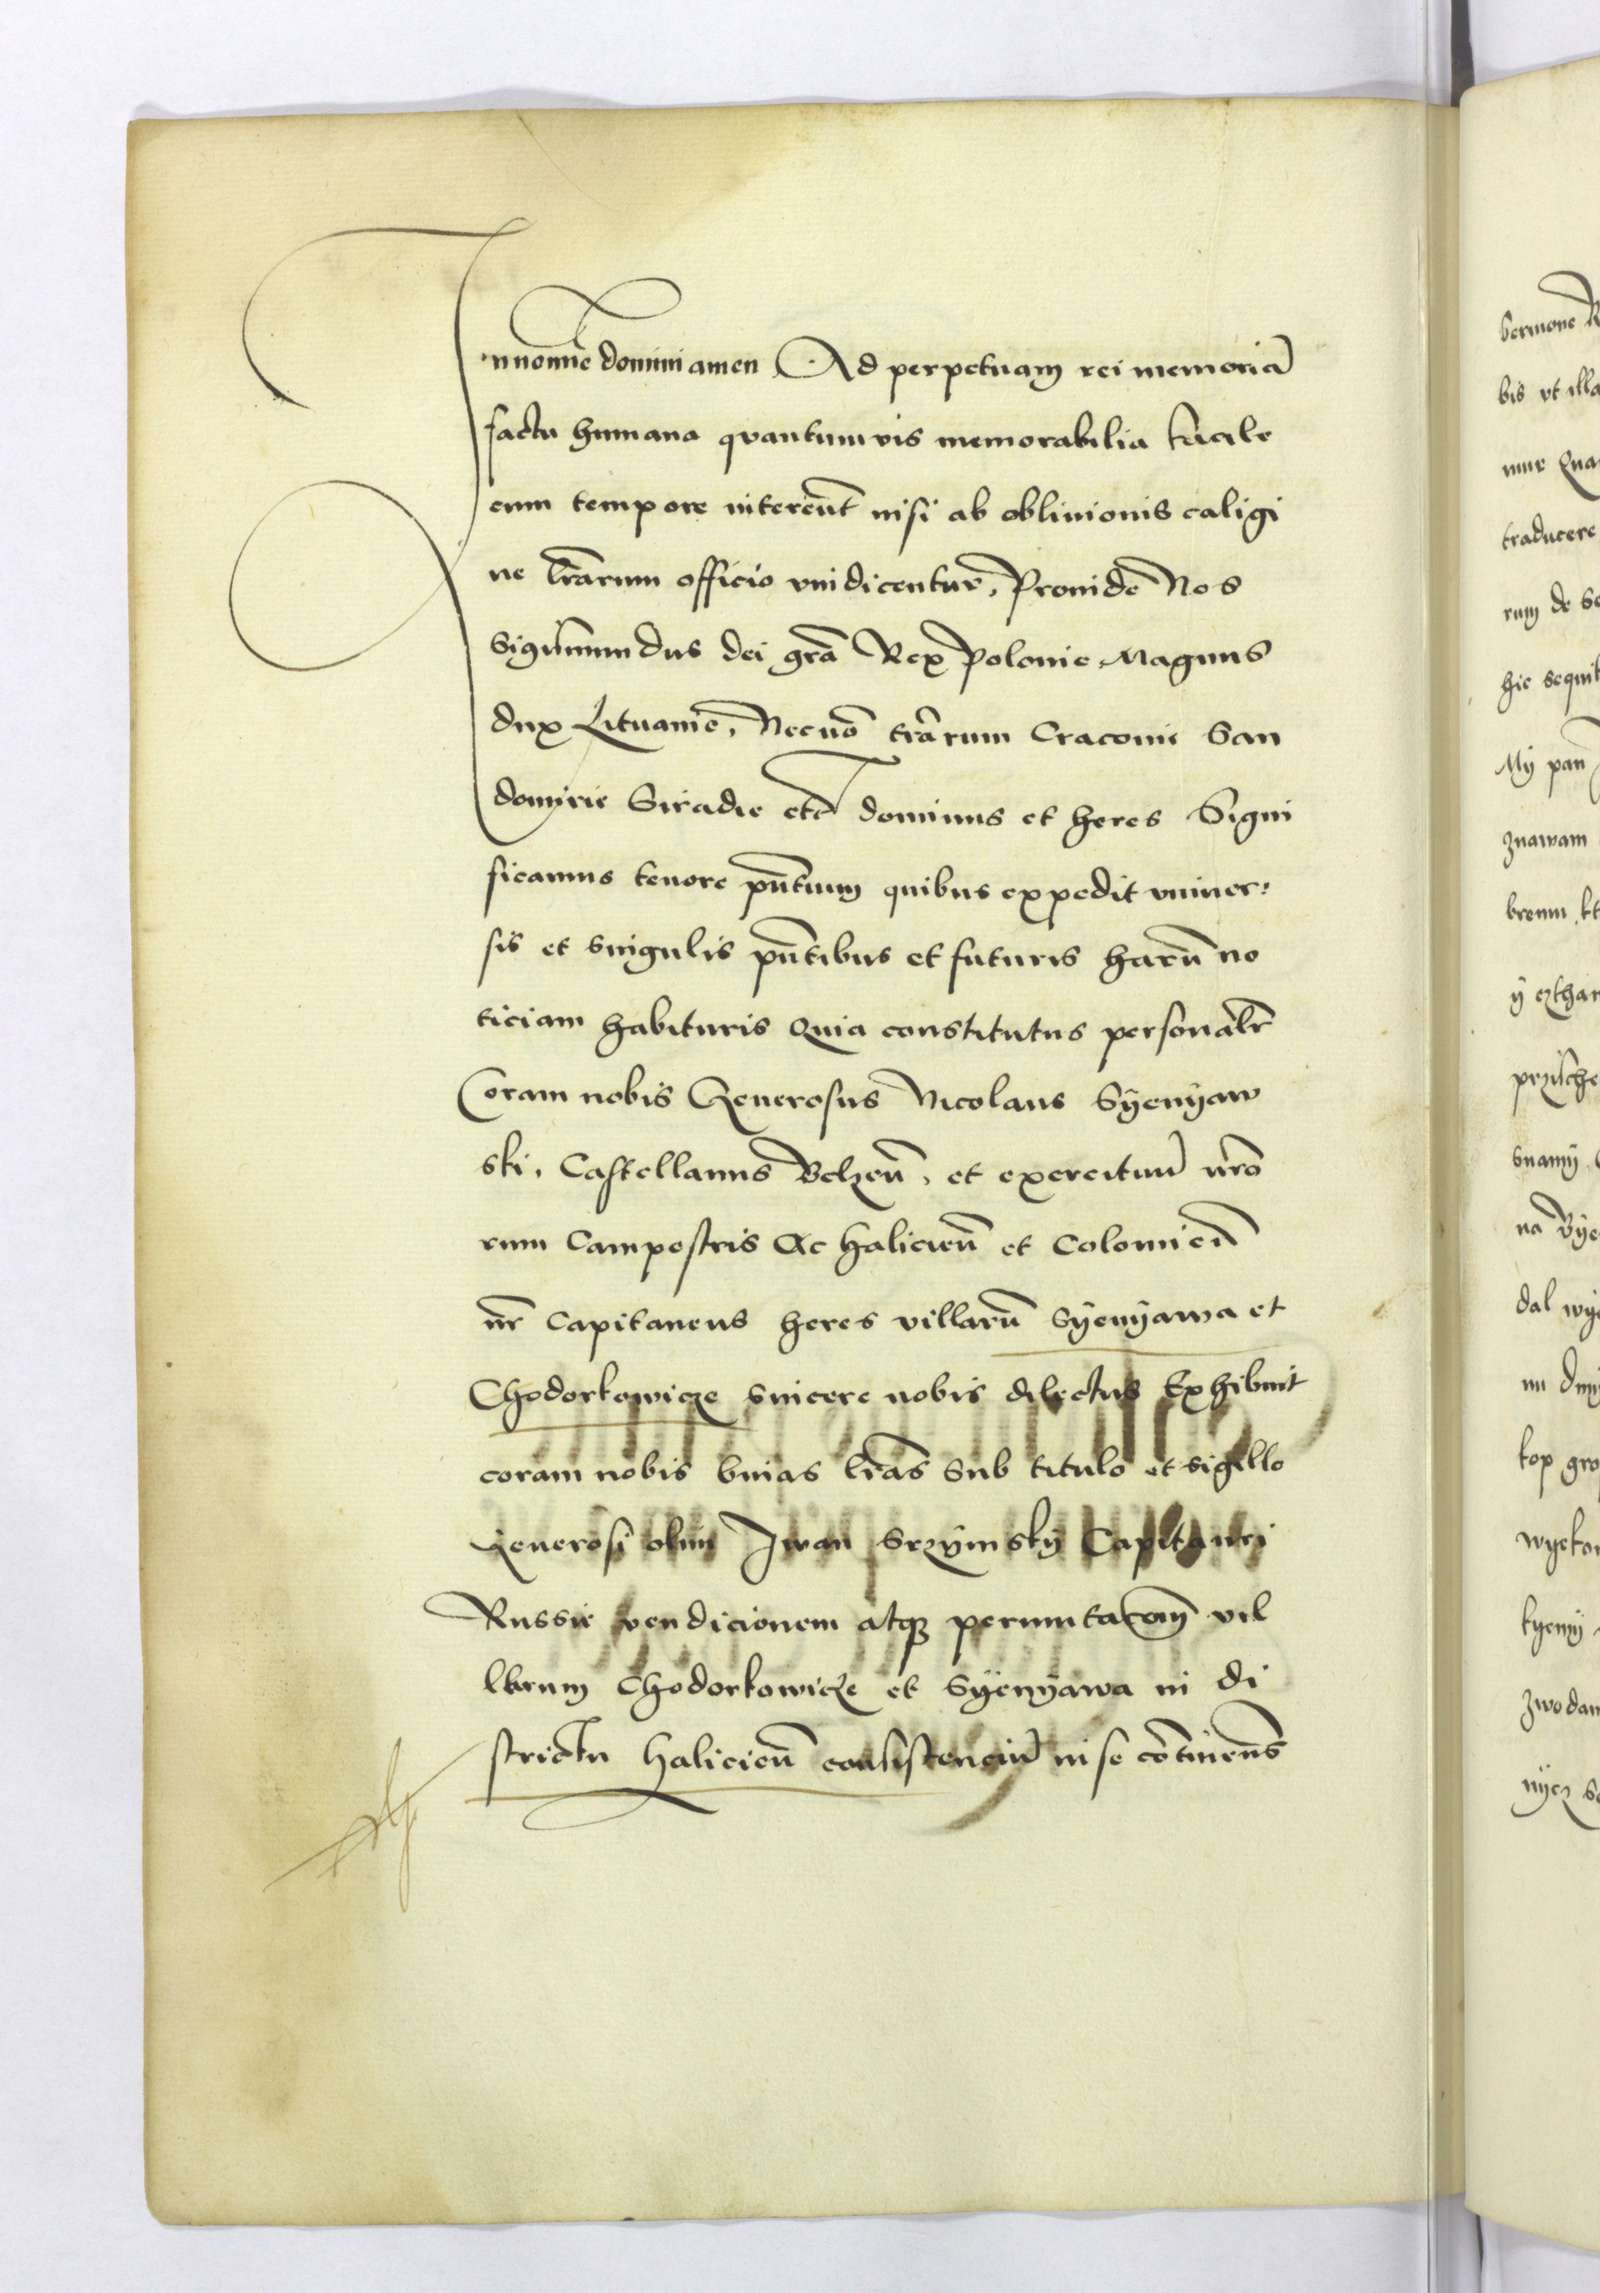 In nomine domini amen Ad perpetuam rei memoriā
facta humana quantumvis memorabilia facile
cum tempore intereūt nisi ab oblivionis caligi
ne lrārum officio vindicentur, Proinde Nos
Sigismundus dei grā Rex Polonie Magnus
dux Lituanie, Necnō trārum Cracovie San
domirie Siradie etc dominus et heres Signi
ficamus tenore pn̄tium quibus expedit univer:
sis et singulis pn̄tibus et futuris harū no
ticiam habituris Quia constitutus personalr̄
Coram nobis Generosus Nicolaus Syenyaw
ski, Castellanus Belzen̄, et exercituū nr̄o
rum Campestris Ac halicien̄ et Colomien̄
nr̄ Capitaneus heres villarū Syenyawa et
Chodorkowicze sincere nobis dilectus Exhibuit
coram nobis binas lrās sub titulo et sigillo
Generosi olim Iwan Srzymsky Capitanei
Russie vendicionem atq3 permutacōm vil
larum Chodorkowicze et Syenyawa in di
strictu halicien̄ consistenciū in se cōtinens
sermone
bis ut illa
mur Qua
traducere
rum de
hic sequit
My pan
znawam
brenu
y czthar
przische
snamy
na
dal wye
nu
kop gro
wyeko
kyemy
zwodam
nyez